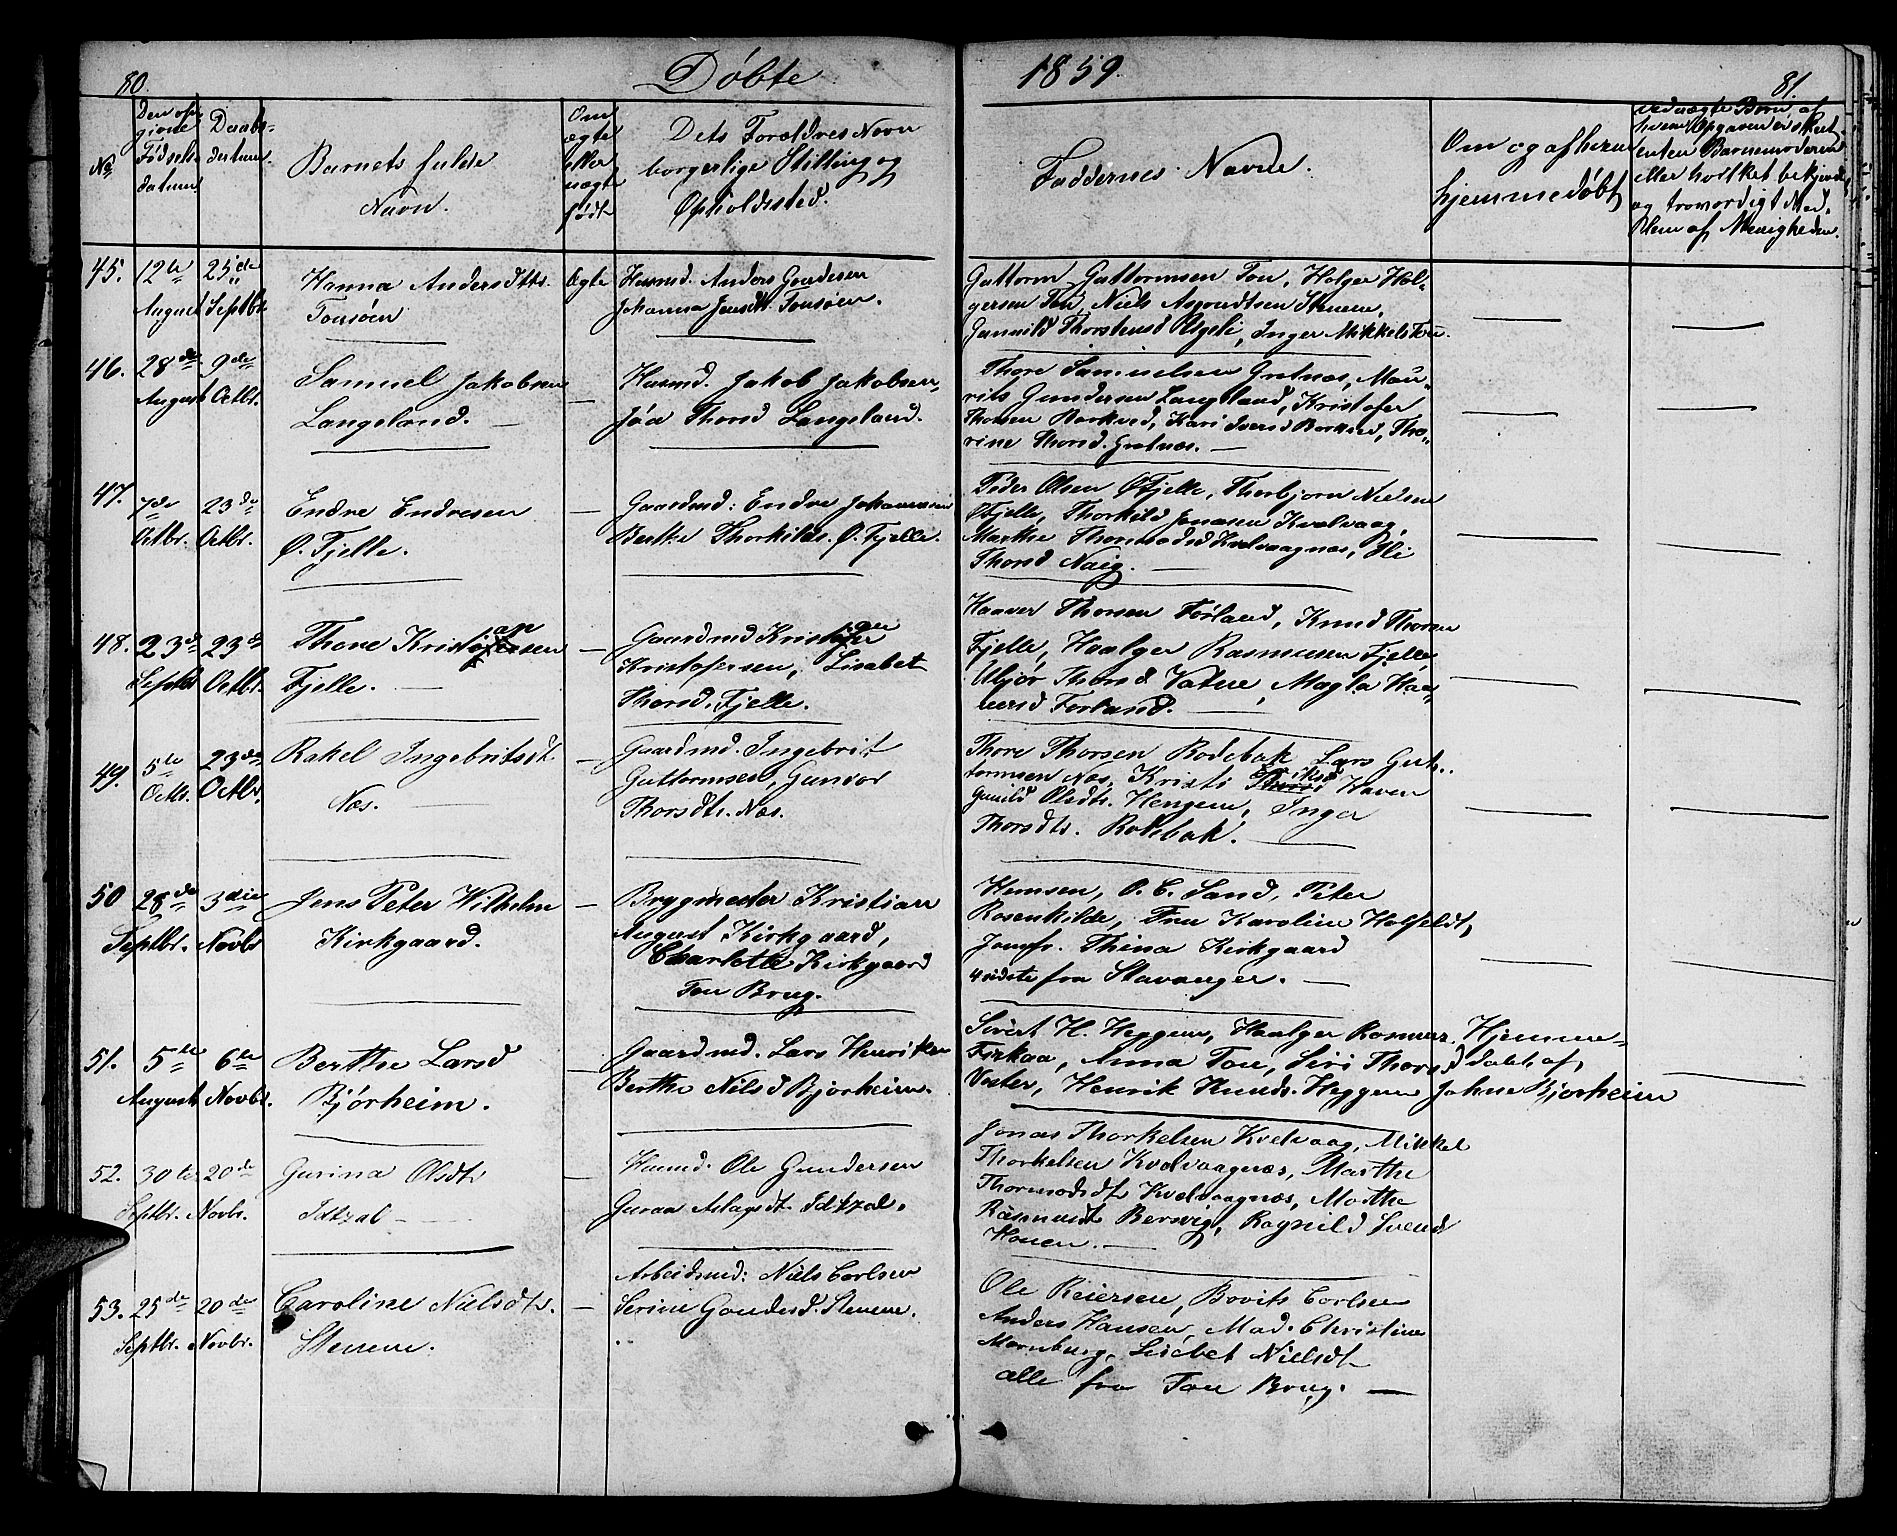 80.
Døbte
1859.
81.
No
Den opgivne Fødselsdatum
Daabsdatum.
Barnets fulde
Navn.
Om
ægte
eller
uægte
født
Dets Forældres Navn
borgerlige Stilling og
Opholdssted.
Faddernes Navne.
Om og af hvem
hjemmedøbt
ved uægte Børn af
enten Barnemoderen
eller hvilket bekjendt
og troværdigt Med-
lem af Menigheden.
45. 12te August 25de Septbr.
Hanna Andersdtr.
Tousøen
Ægte
Husmd. Anders Gondesen
Johanna Jensdtr Tousøen.
Guttorm Guttormsen Tou, Holger Hol-
gersen Tou, Niels Asgoudtsen Stenene,
Gunnild Thorstensd Uxeli, Inger Mikkelsd Tou.
46. 28de August 9de Octbr.
Samuel Jakobsen
Langeland.
Husmd. Jakob Jakobsen,
Jóa Thorsd Langeland.
Thore Samuelsen Gretnæs, Mau-
rits Gundersen Langeland, Kristofer
Thorsen Barkved, Kari Iversd Barkved, Tho-
rine Thorsd. Gretnæs.
47. 7de Octbr. 23de Octbr.
Endre Endresen
Ø. Fjelle.
Gaardmd: Endre Johannesen
Berthe Thorkilds. Ø. Fjelle.
Peder Olsen ØFjelle, Thorbjorn Nielsen
ØFjelle, Thorkild Jonasen Kvalvaag,
Marthe Thormodsd Kvalvaagnæs, Eli
Thorsd Naig.
48. 23de Septbr 23de Octbr.
Thore Kristiansen
Fjelle.
Gaardmd Kristian
Kristofersen, Lisabet
Thorsd. Fjelle.
Haaver Thorsen Førland, Knud Thorsen
Fjelle, Haalger Rasmusen Fjelle
Uljør Thorsd Vatne, Magla Haa-
versd Forland.
49. 5te Octbr. 23de Octbr.
Rakel Ingebritsdt.
Næs.
Gaardmd. Ingebrit
Guttormsen, Gunvor
Thorsdtr. Næs.
Thore Thorsen Rodebak, Lars Gut-
tormsen Næs, Kristi Eriksd Haven
Gunild Olsdtr. Hengene, Inger
Thorsdtr. Rodebak.
50 28de Septbr. 3die Novbr
Jens Peter Wilhelm
Kirkgaard.
Brygmester Kristian
August Kirkgaard,
Charlotte Kirkgaard
Tou Brug.
Hemsen, O. C. Sand, Peter
Rosenkilde, Fru Karoline Holfeldt,
Jomfr. Thina Kirkgaard
4 sidste fra Stavanger.
51. 5te August 6te Novbr.
Berthe Larsd
Bjórheim.
Gaardmd. Lars Henriksen
Berthe Nilsd Bjorheim.
Sivert H. Heggem, Haalger Rasmus.
Fiskaa, Anna Tou, Siri Thorsd
Voster, Henrik Knuds. Heggem
Hjemme-
døbt af,
Johne Bjorheim
52. 30te Septbr. 20de Novbr.
Gurina Olsdtr
Idtzal
Husmd. Ole Gundersen
Guroa Aslagsdt. Idtzal.
Jonas Thorkelsen Kvelvaag, Mikkel
Thorkelsen Kvelvaagnæs, Marthe
Thormodsdtr Kvelvaagnæs, Marthe
Rasmusdt Bersvig, Ragnild Svends
Haven.
53. 25de Septbr. 20de Novbr.
Caroline Nielsdtr.
Stenene.
Arbeidsmd: Niels Carlsen
Serine Gondesd. Stenene.
Ole Reiersen, Bovits Carlsen
Anders Hansen, Mad. Christine
Mornburg, Lisebet Nielsdt
alle fra Tou Brug.